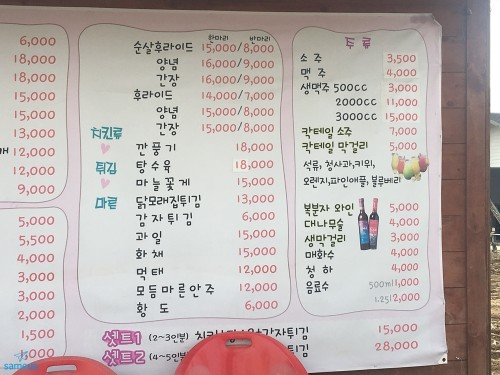 6,000
18,000
18,000
15,000
15,000
13,000
12,000
12,000
9,000
5,000
5,000
4,000
3,000
2,000
1,500
1,000
한마리 반마리
순살후라이드 15,000/8,000
양념 16,000/9,000
간장 16,000/9,000
후라이드 14,000/7,000
양념 15,000/8,000
간장 15,000/8,000
치킨류
튀김
마른
깐풍기 18,000
탕수육 18,000
마늘꽃게 15,000
닭모래집튀김 13,000
감자튀김 6,000
과일 15,000
화채 15,000
먹태 12,000
모듬마른안주 12,000
황도 6,000
주류
소주 3,500
맥주 4,000
생맥주 500cc 3,000
2000cc 11,000
3000cc 15,000
칵테일 소주 7,000
칵테일 막걸리 5,000
석류, 청사과, 키위,
오렌지, 파인애플, 블루베리
복분자 와인 5,000
대나무술 4,000
생막걸리 3,000
매화수 4,000
청하 4,000
음료수 500ml 1,000
1.25l 2,000
셋트1 (2~3인분) 감자튀김 15,000
셋트2 (4~5인분) 튀김 28,000